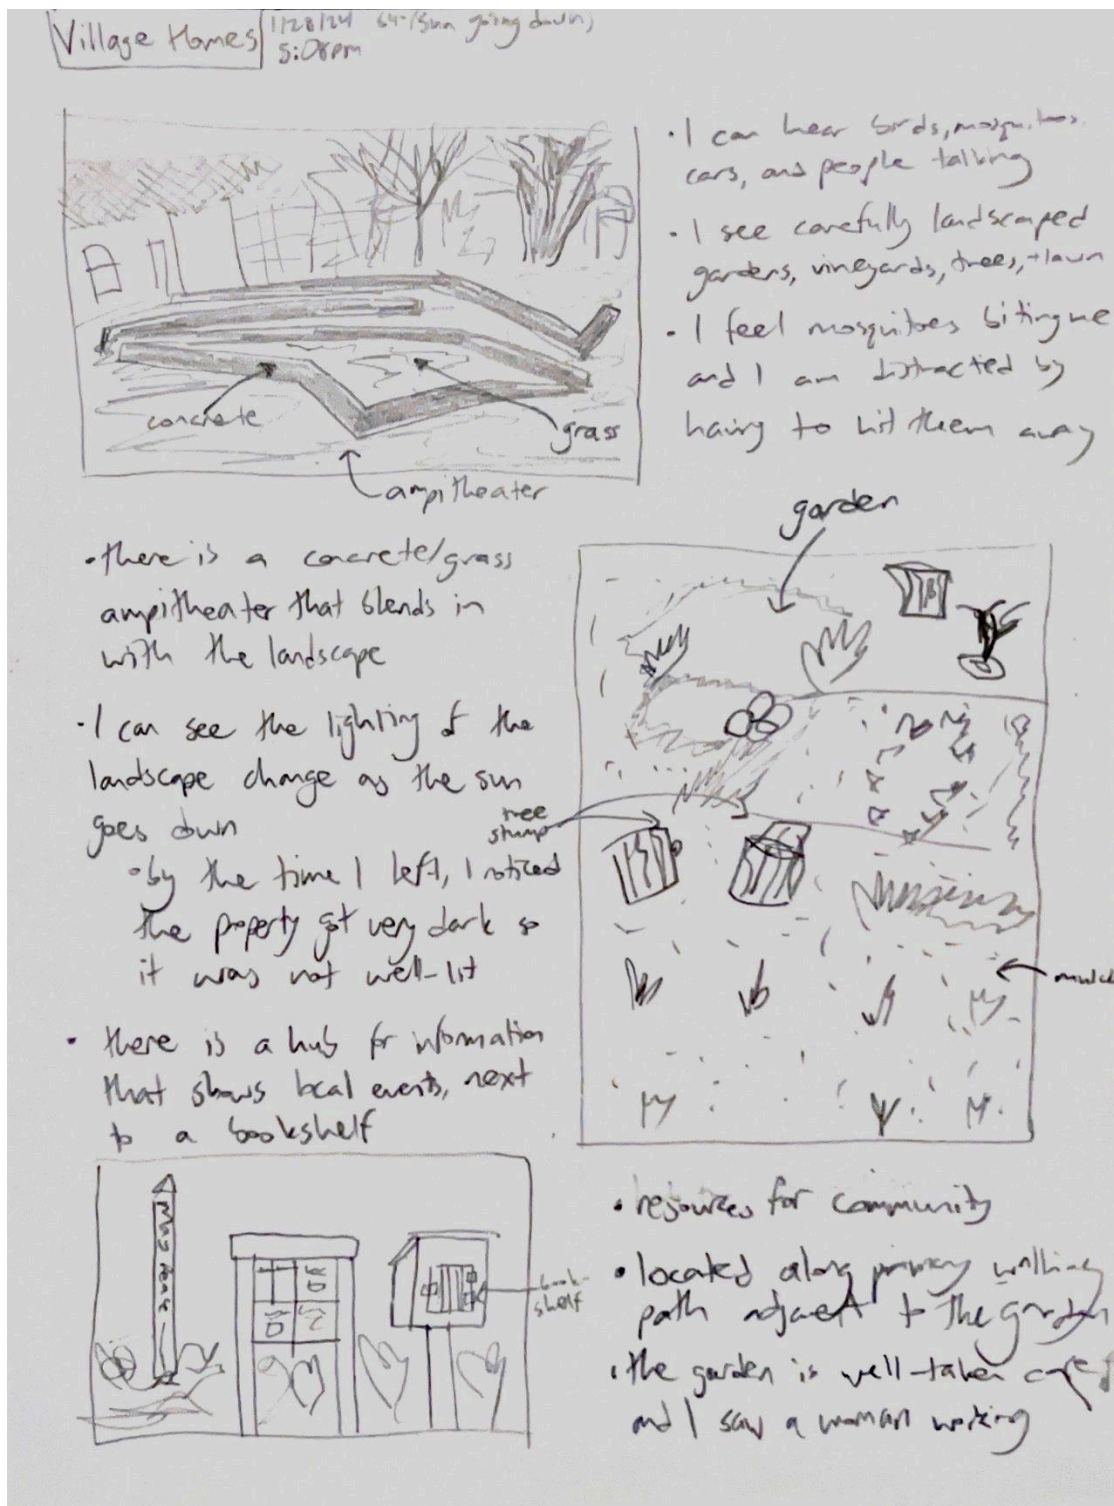 Village Homes
1/28/24 64° (sun going down)
5:08pm
• I can hear birds, mosquitoes,
cars, and people talking
• I see carefully landscaped
gardens, vineyards, trees, + lawn
• I feel mosquitoes biting me
and I am distracted by
having to hit them away
concrete
grass
ampitheater
garden
• there is a concrete/grass
ampitheater that blends in
with the landscape
• I can see the lighting of the
landscape change as the sun
goes down
• by the time I left, I noticed
the property got very dark so
it was not well-lit
tree
stump
• there is a hub for information
that shows local events, next
to a bookshelf
book-
shelf
• resources for community
• located along primary walking
path adjacent to the garden
• the garden is well-taken care of
and I saw a woman working